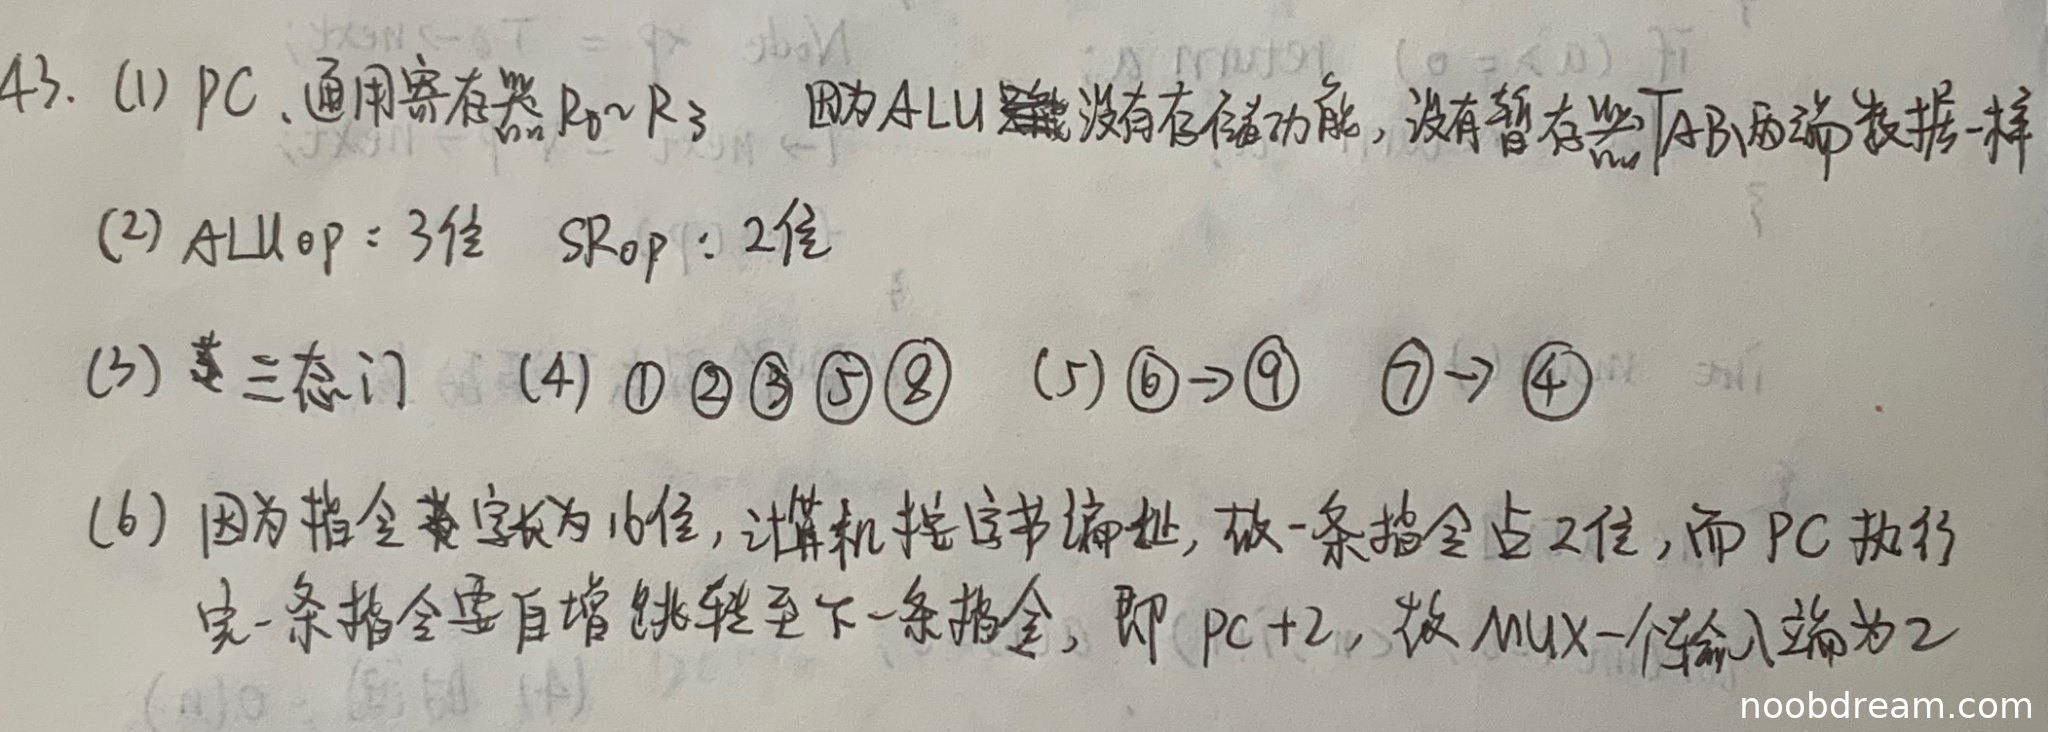 43. (1) PC、通用寄存器R0~R3 因为ALU没有存储功能,没有暂存器,AB两端数据一样
(2) ALUop:3位 SRop:2位
(3) 三态门 (4) ① ② ③ ⑤ ⑧ (5) ⑥→⑨ ⑦→④
(6) 因为指令字长为16位,计算机按字节编址,故一条指令占2位,而PC执行
完一条指令要自增跳转至下一条指令,即PC+2,故MUX一个输入端为2
noobdream.com